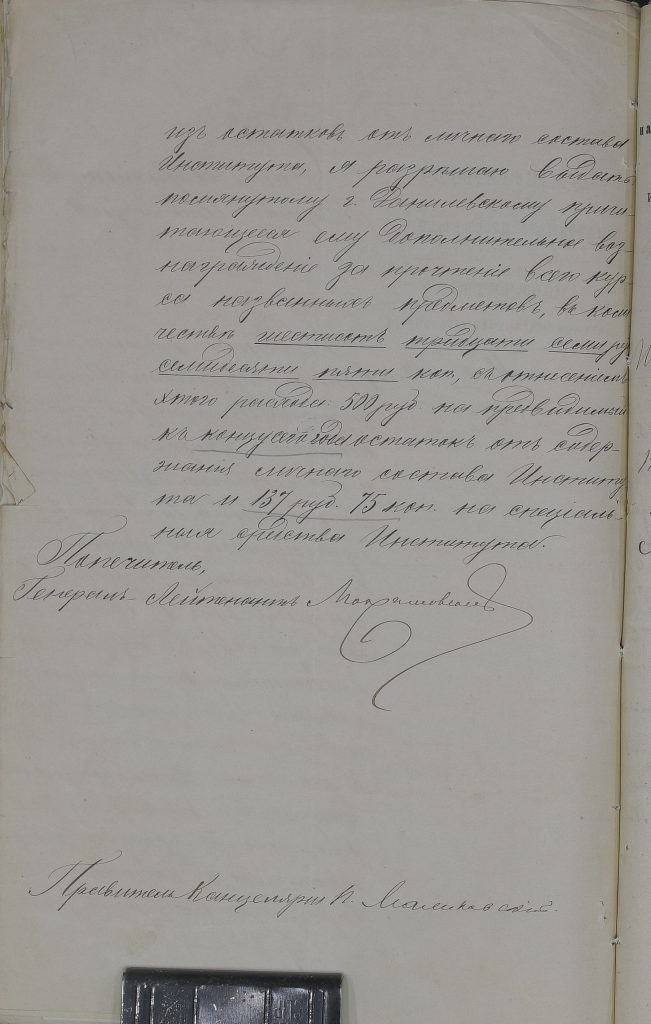 изъ остатковъ отъ личнаго состава
Института, я разрѣшаю выдать
помянутому г. Данилевскому причи-
тающееся ему дополнительное воз-
награжденіе за прочтеніе всего кур-
са названныхъ предметовъ, въ коли
чествѣ шестисотъ тридцати семи ру
семидесяти пяти коп., съ отнесеніемъ
этого расхода: 500 руб. на предвидимый
къ концу сего года остатокъ отъ содер-
жанія личнаго состава Институ
та и 137 руб. 75 коп. на спеціаль-
ныя средства Института.
Попечитель,
Генералъ-Лейтенантъ
Правитель Канцеляріи П. Малиновскій.